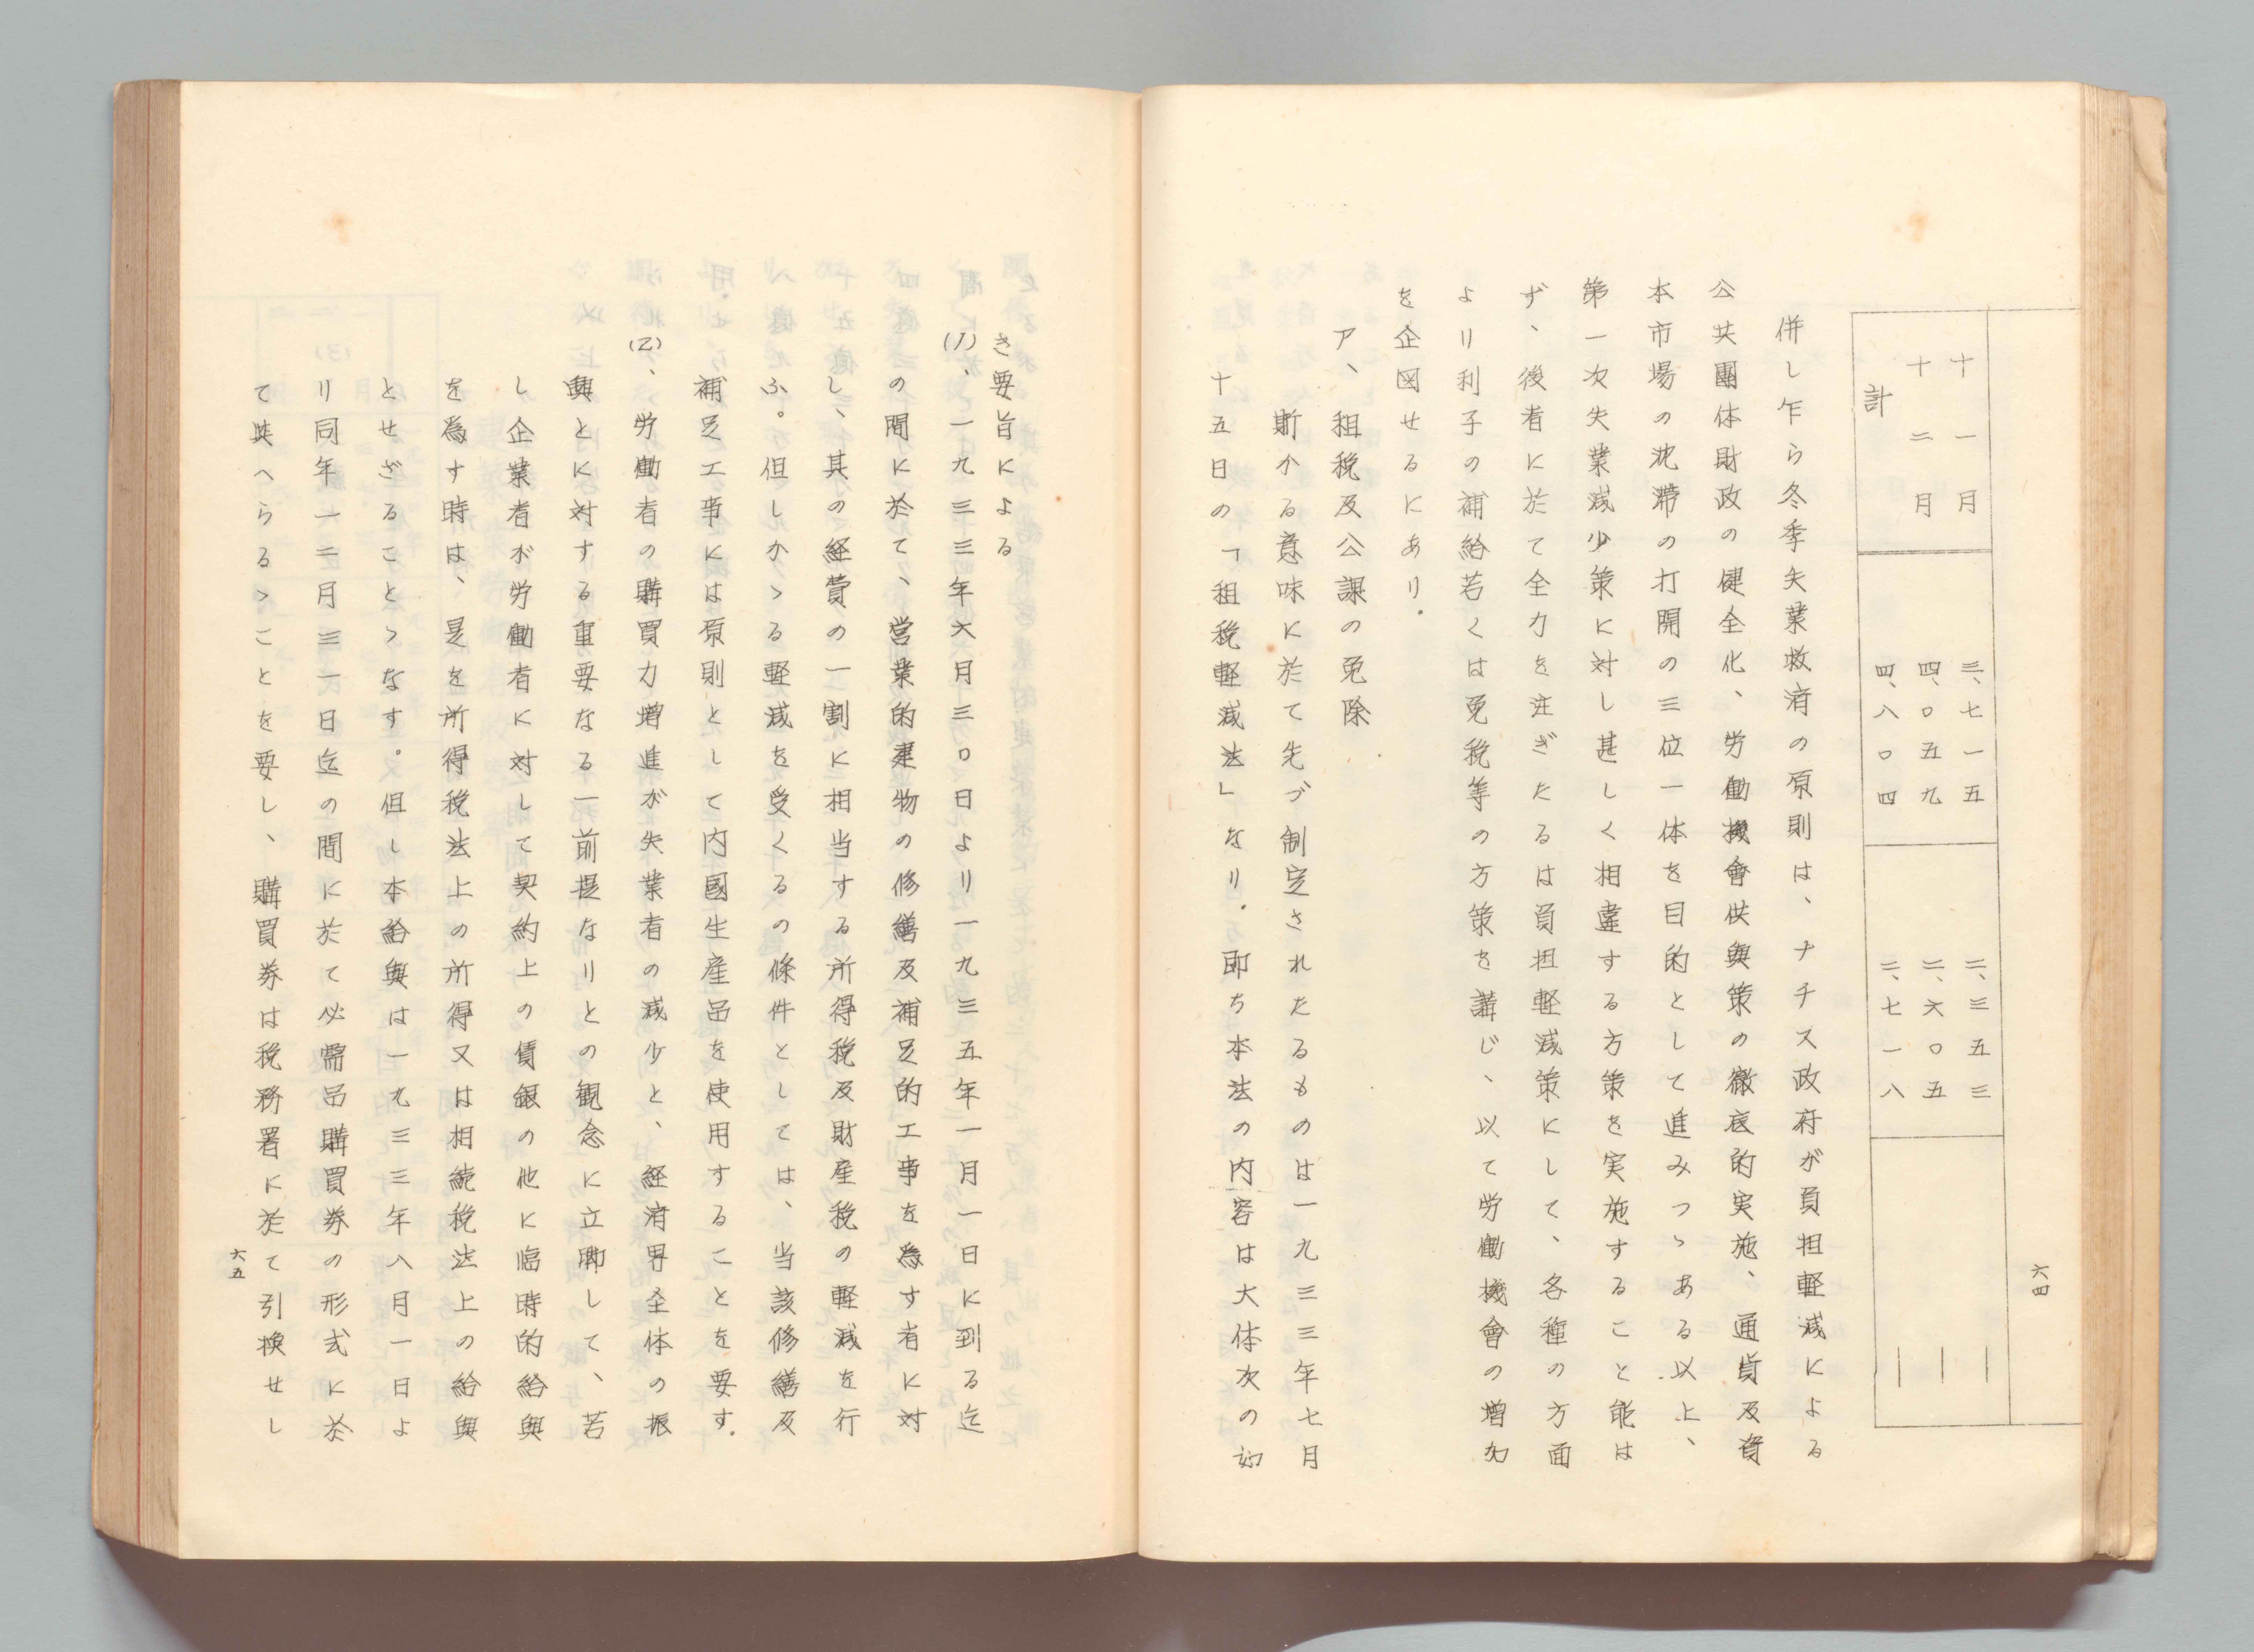 六四
十一月 三、七一五 二、三五三 ―
十二月 四、〇五九 二、六〇五 ―
計 四、八〇四 二、七一八 ―
併し乍ら冬季失業救済の原則は、ナチス政府が負担軽減による
公共團体財政の健全化、労働機會供與策の徹底的実施、通貨及資
本市場の沈滞の打開の三位一体を目的として進みつゝある以上、
第一次失業減少策に対し甚しく相違する方策を実施すること能は
ず、後者に於て全力を注ぎたるは負担軽減策にして、各種の方面
より利子の補給若くは免税等の方策を講じ、以て労働機會の増加
を企図せるにあり.
ア、租税及公課の免除
斯かる意味に於て先づ制定されたるものは一九三三年七月
十五日の「租税軽減法」なり. 即ち本法の内容は大体次の如
き要旨による
(1)、一九三三年六月三〇日より一九三五年一月一日に到る迄
の間に於て、営業的建物の修繕及補足的工事を為す者に対
し、其の経費の一割に相当する所得税及財産税の軽減を行
ふ。但しかゝる軽減を受くるの條件としては、当該修繕及
補足工事には原則として内國生産品を使用することを要す.
(2)、労働者の購買力増進が失業者の減少と、経済界全体の振
興とに対する重要なる一前提なりとの観念に立脚して、若
し企業者が労働者に対して契約上の賃銀の他に臨時的給與
を為す時は、是を所得税法上の所得又は相続税法上の給與
とせざることゝなす。但し本給與は一九三三年八月一日よ
り同年一二月三一日迄の間に於て必需品購買券の形式に於
て與へらるゝことを要し、購買券は税務署に於て引換せし
六五